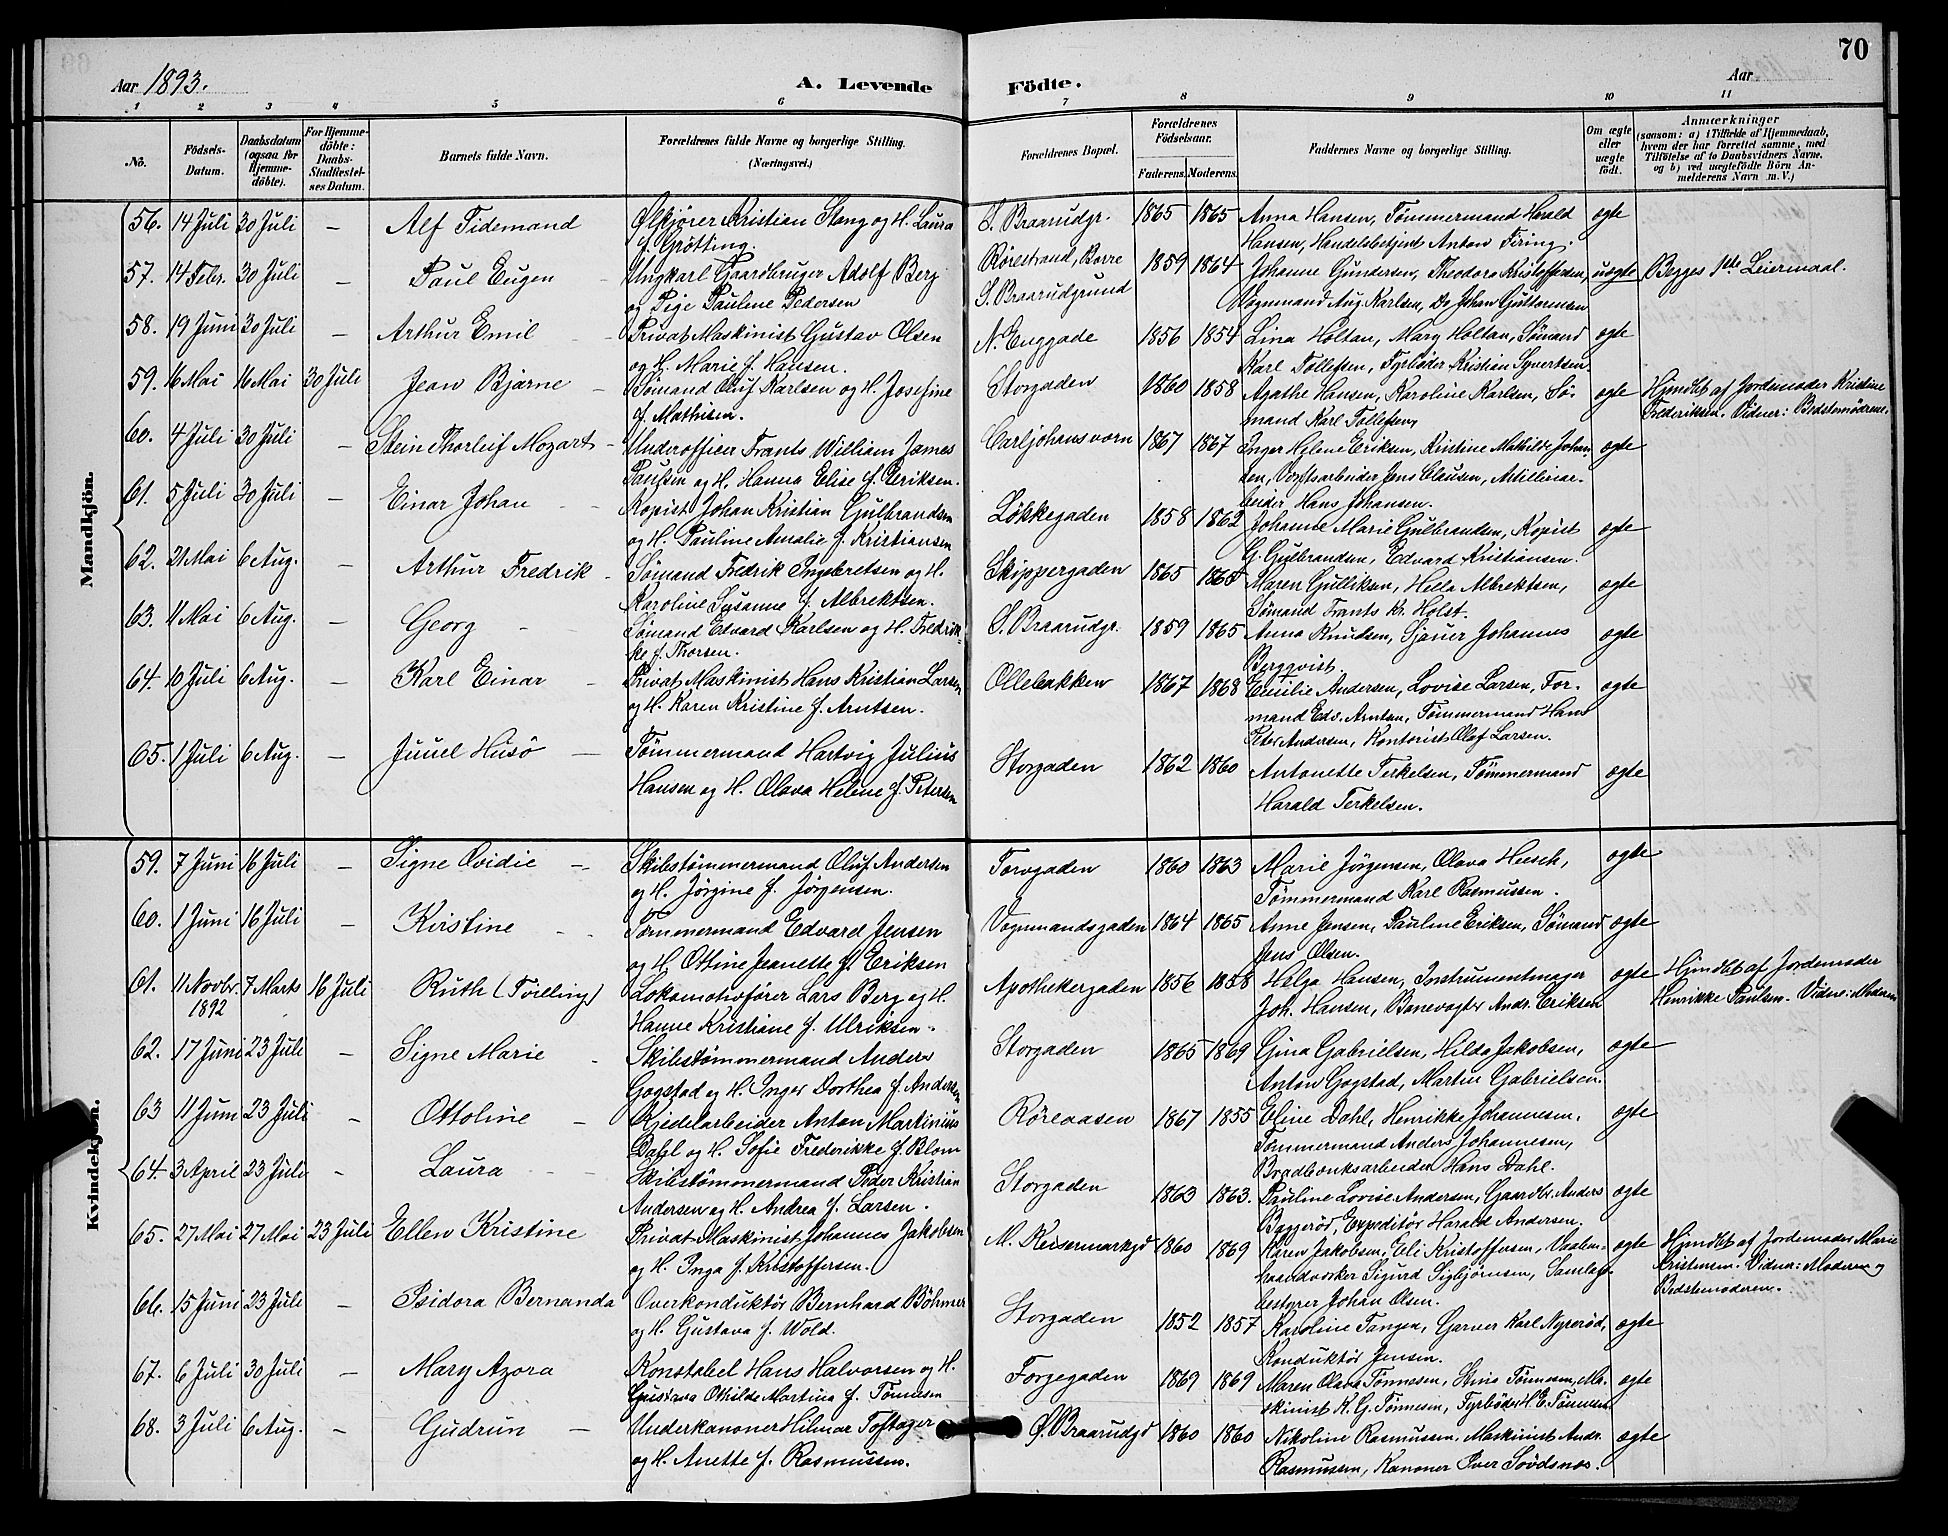 70
Aar 1893.
A. Levende Födte.
Aar
1 2 3 4 5 6 7 8 9 10 11
No.
Födsels-Datum.
Daabsdatum (ogsaa for Hjemme-döbte).
For Hjemme-döbte: Daabs-Stadfæstel-ses Datum.
Barnets fulde Navn.
Forældrenes fulde Navne og borgerlige Stilling. (Næringsvei.)
Forældrenes Bopæl.
Forældrenes Födselsaar.
Faderens. Moderens.
Faddernes Navne og borgerlige Stilling.
Om ægte eller uægte födt.
Anmærkninger (saasom: a) i Tilfælde af Hjemmedaab, hvem der har forrettet samme, med Tilföielse af to Daabsvidners Navne, og b) ved uægtefödte Börn An-melderens Navn m. V.)
Mandkjön.
56. 14 Juli 30 Juli — Alf Tidemand Ølkjører Kristian Stang og H. Laura f. Grötting. S. Braarudgr. 1865 1865 Anna Hansen, Tømmermand Harald Hansen, Handelsbetjent Anton Firing. ægte
57. 14 Febr. 30 Juli — Paul Eugen Ungkarl Gaardbruger Adolf Berg og Pige Pauline Pedersen Rørestrand, Borre S. Braarudgrund 1859 1864 Johanne Gundersen, Theodora Kristoffersen, Vognmand Aug. Karlsen, Do Johan Guttormsen uægte Begges 1ste Leiermaal.
58. 19 Juni 30 Juli — Arthur Emil Privat Maskinist Gustav Olsen og H. Marie f. Hansen. N. Enggade 1856 1854 Lina Holtan, Mary Holtan, Sömand Karl Tollefsen, Fyrböter Kristian Syvertsen ægte
59. 16 Mai 16 Mai 30 Juli Jean Bjarne Sömand Oluf Karlsen og H. Josefine f. Mathisen. Storgaden 1860 1858 Agathe Hansen, Karoline Karlsen, Sömand Karl Tollefsen ægte Hjmdbt af Jordemoder Kristine Frederiksen. Vidner: Bedstemødrene.
60. 4 Juli 30 Juli — Stein Thorleif Mozart Underofficer Frants William James Paulsen og H. Hanna Elise f. Eriksen. Carljohansværn 1867 1867 Inger Helene Eriksen, Kristine Mathilde Johansen, Værftsarbeider Jens Clausen, Artilleriarbeider Hans Johansen. ægte
61. 5 Juli 30 Juli — Einar Johan Kopist Johan Kristian Gulbrandsen og H. Pauline Amalie f. Kristiansen Løkkegaden 1858 1862 Johanne Marie Gulbrandsen, Kopist G. Gulbrandsen, Edvard Kristiansen. ægte
62. 21 Mai 6 Aug. — Arthur Fredrik Sömand Fredrik Ingebretsen og H. Karoline Susanne f. Albrektsen. Skippergaden 1865 1868 Maren Gulliksen, Hella Albrektsen, Sömand Frants Kr. Holst. ægte
63. 11 Mai 6 Aug. — Georg Sömand Edvard Karlsen og H. Fredrikke f. Thorsen. S. Braarudgr. 1859 1865 Anna Knudsen, Sjauer Johannes Bergqvist. ægte
64. 10 Juli 6 Aug. — Karl Einar Privat Maskinist Hans Kristian Larsen og H. Karen Kristine f. Arntsen. Ollebakken 1867 1868 Emilie Andersen, Lovise Larsen, Formand Edv. Arntsen, Tømmermand Hans Peter Andersen, Kontorist Olaf Larsen. ægte
65. 1 Juli 6 Aug. — Juuel Husö Tömmermand Hartvig Julius Hansen og H. Olava Helene f. Petersen Storgaden 1862 1860 Antonette Terkelsen, Tømmermand Harald Terkelsen. ægte
Kvindekjön.
59. 7 Juni 16 Juli — Signe Ovidie Skibstømmermand Oluf Andersen og H. Jørgine f. Jørgensen. Torvgaden 1860 1863 Marie Jørgensen, Olava Heesch, Tømmermand Karl Rasmussen. ægte
60. 1 Juni 16 Juli — Kristine Tømmermand Edvard Jensen og H. Ottine Jeanette f. Eriksen Vognmandsgaden 1864 1865 Anne Jensen, Pauline Eriksen, Sömand Jens Olsen. ægte
61. 11 Novbr. 1892 7 Marts 16 Juli Ruth (Tvilling) Lokomotivfører Lars Berg og H. Hanne Kristiane f. Ulriksen. Apothekergaden 1856 1858 Helga Hansen, Instrumentmager Joh. Hansen, Banevogter Andr. Eriksen ægte Hjmdbt af Jordemoder Henrikke Paulsen. Vidne: Moderen
62. 17 Juni 23 Juli — Signe Marie Skibstömmermand Anders Gogstad og H. Inger Dorthea f. Andersen Storgaden 1865 1869 Gina Gabrielsen, Hilda Jakobsen, Anton Gogstad, Martin Gabrielsen. ægte
63 11 Juni 23 Juli — Ottoline Kjedelarbeider Anton Martinius Dahl og H. Sofie Frederikke f. Blom Röreaasen 1867 1855 Eline Dahl, Henrikke Johannesen, Tømmermand Anders Johannesen, Bradbænksarbeider Hans Dahl. ægte
64. 3 April 23 Juli — Laura Skibstömmermand Peder Kristian Andersen og H. Andrea f. Larsen. Storgaden 1863 1863. Pauline Lovise Andersen, Gaardbr. Anders Baggerød, Expeditör Harald Andersen. ægte
65. 27 Mai 27 Mai 23 Juli Ellen Kristine Privat Maskinist Johannes Jakobsen og H. Inga f. Kristoffersen. M. Keisermarkgd 1860 1869 Karen Jakobsen, Eli Kristoffersen, Vaabenhaandværker Sigurd Sigbjørnsen, Samlagsbestyrer Johan Olsen. ægte Hjmdbt af Jordemoder Marie Kristensen. Vidner: Moderen og Bedstemoderen.
66. 15 Juni 23 Juli — Isidora Bernanda Overkonduktör Bernhard Böhmer og H. Gustava f. Wold. Storgaden 1852 1857 Karoline Tangen, Garver Karl Nyrerød, Konduktör Jensen. ægte
67. 6 Juli 30 Juli — Mary Azora Konstabel Hans Halvorsen og H. Gustava Othilde Martina f. Tönnesen Torgegaden 1869 1869 Maren Olava Tönnesen, Stina Tönnesen, Maskinist K. G. Tönnesen, Fyrböder H. E. Tönnesen ægte
68. 3 Juli 6 Aug. — Gudrun Underkanoner Hilmar Toftager og H. Anette f. Rasmussen. Ø. Braarudgd 1860 1860 Nikoline Rasmussen, Maskinist Andr. Rasmussen, Kanoner Iver Sövdsnæs. ægte